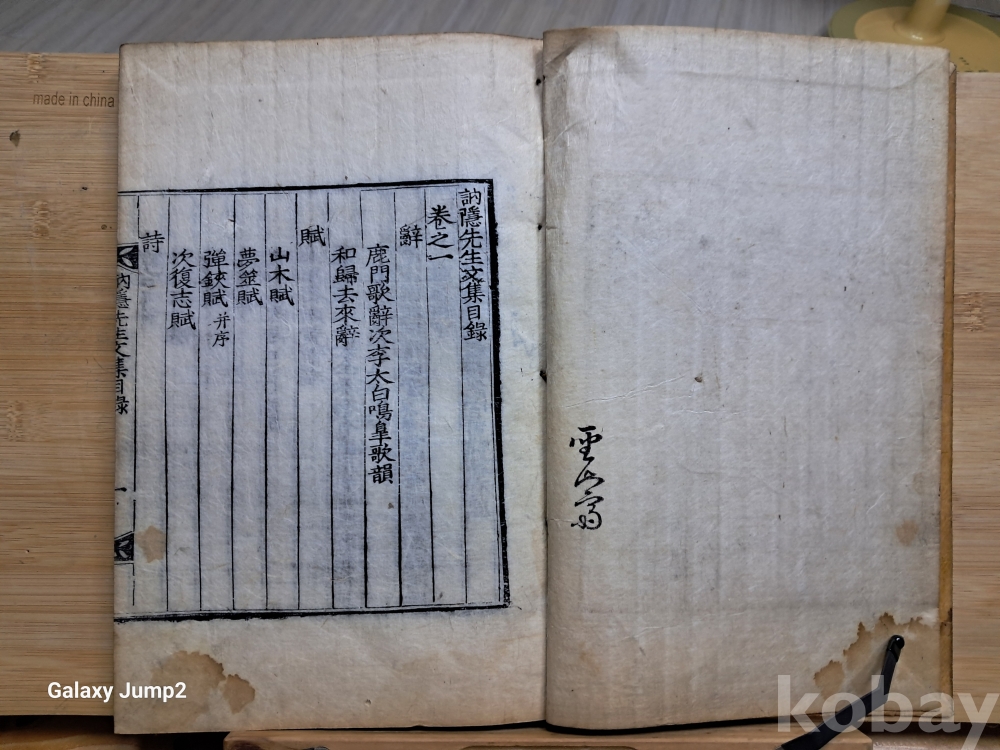 made in china
訥隱先生文集目錄
卷之一
辭
鹿門歌辭次李太白鳴皐歌韻
和歸去來辭
賦
山木賦
夢筮賦
彈鋏賦 并序
次復志賦
詩
訥隱先生文集目錄
一
Galaxy Jump2
kobay